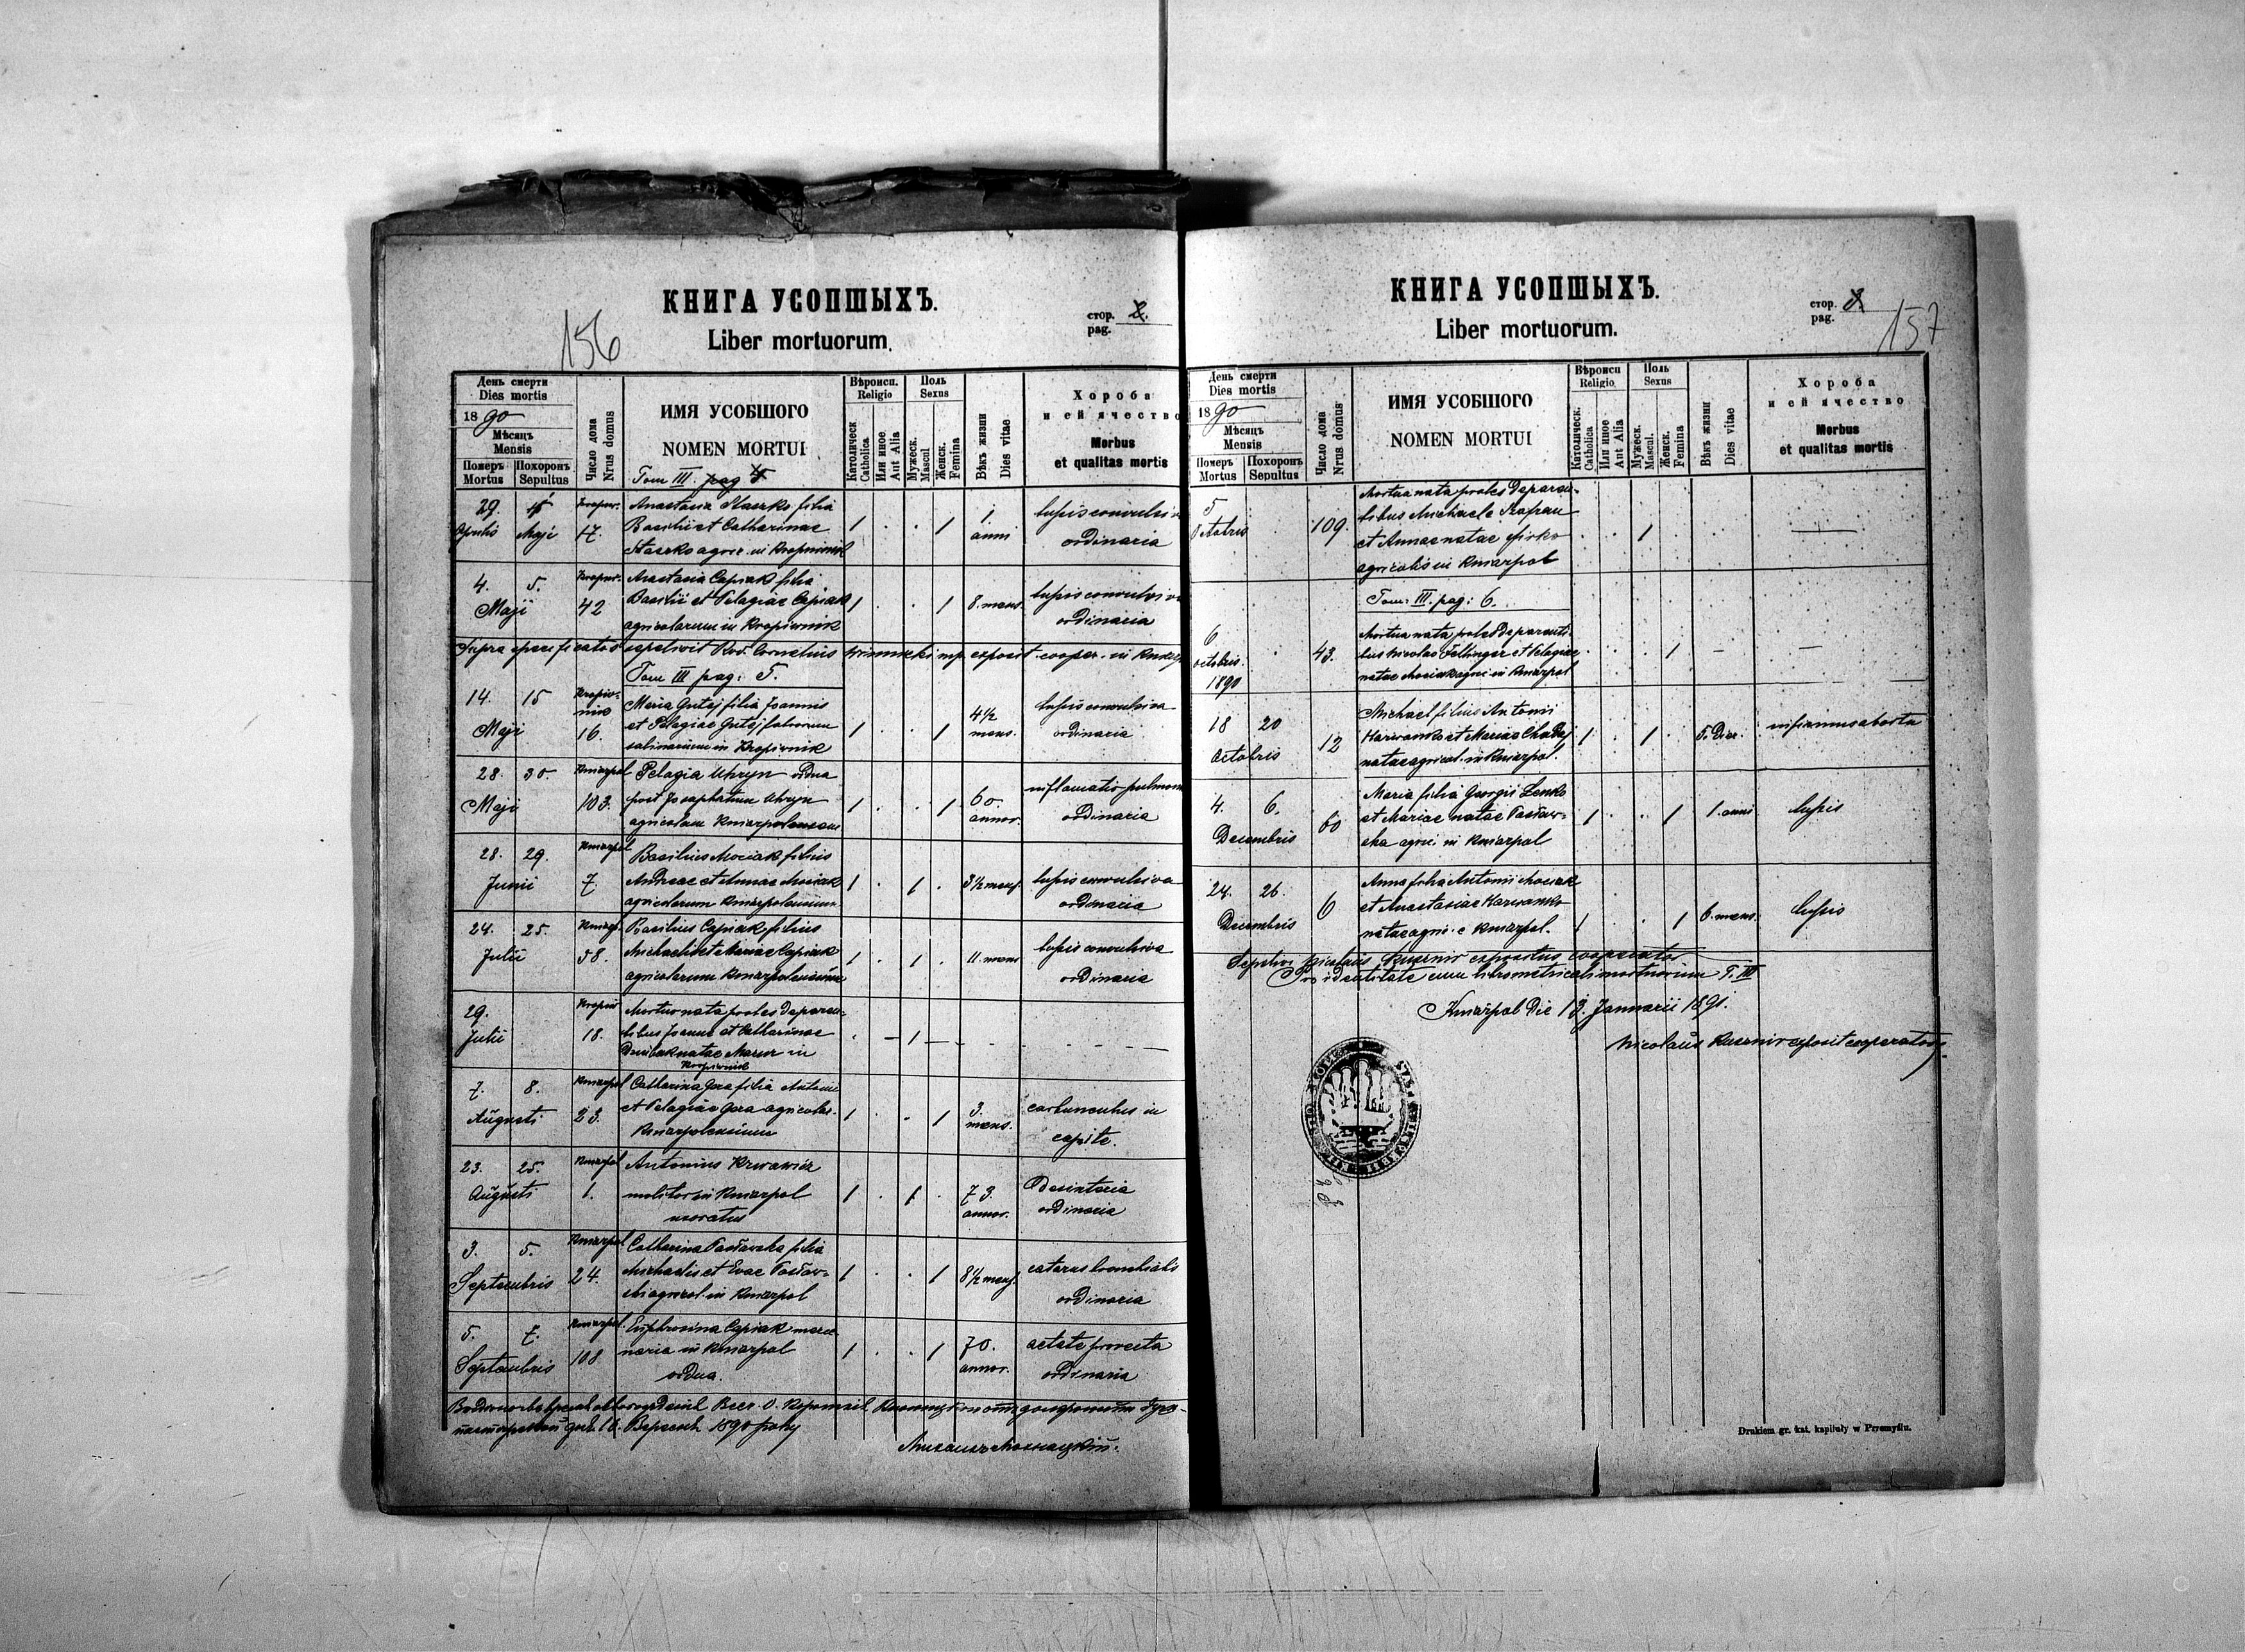 КНИГА УСОПШЫХЪ.
Liber mortuorum.
156
стор. 2.
pag.
День смерти
Dies mortis
1890
Мѣсяцъ
Mensis
Померъ
Mortus
Похоронъ
Sepultus
Число дома
Nrus domus
ИМЯ УСОБШОГО
NOMEN MORTUI
Tom III pag 5
Вѣроисп.
Religio
Католическ
Catholica
Или иное
Aut Alia
Поль
Sexus
Мужеск.
Mascul
Женск.
Femina
Вѣкъ жизни
Dies vitae
Хороба
и ей ячество
Morbus
et qualitas mortis
29. Aprilis Maji 17. Anastasia Staszko filia
Basilii et Catharinae
Staszko agric. in Kropiwnik
1 . . 1 1. anni
tussis convulsiva
ordinaria
4. 5. Maji 42 Anastasia Capiak filia
Basilii et Pelagiae Capiak
agricolarum in Kropiwnik
1 . . 1 8. mens.
tussis convulsiva
ordinaria
Supra specificatos sepelivit Rvd. Cornelius mp. exposit. cooper. in
Tom III pag: 5.
14. 15 Maji Kropiwnik 16. Maria Gutej filia Joannis
et Pelagiae Gutej laborum
salinarium in Kropiwnik
1 . . 1 4½ mens.
tussis convulsiva
ordinaria
28. 30. Maji Kniazpol 103. Pelagia Uhryn vidua
post Josaphatum Uhryn
agricolam Kniazpolensem
1 . . 1 60. annor.
inflamatio pulmon
ordinaria
28. 29. Junii Kniazpol 7. Basilius Mociak filius
Andreae et Annae Mociak
agricolarum Kniazpolensium
1 . 1 . 3½ mens.
tussis convulsiva
ordinaria
24. 25. Julii 58. Basilius Capiak filius
Michaelis et Mariae Capiak
agricolarum Kniazpolensium
1 . 1 . 11. mens
tussis convulsiva
ordinaria
29. Julii Kropiw 18. Mortuo nata proles de paren-
tibus Joanne et Catharinae
natae Mazur in
Kropiwnik
7. 8. Augusti Kniazpol 23. Catharina Gera filia Antonii
et Pelagiae Gera agricolar.
Kniazpolensium
1 . . 1 3. mens.
carbunculus in
capite.
23. 25. Augusti Kniazpol 1. Antonius Krwawicz
molitor in Kniazpol
uxoratus
1 . 1 . 73. annor.
Desinteria
ordinaria
3. 5. Septembris Kniazpol 24. Catharina Pasławska filia
Michaelis et Evae Pasław-
ski agricol. in Kniazpol
1 . . 1 8½ mens.
catarus bronchialis
ordinaria
5. 7. Septembris Kniazpol. 108 Euphrosina Capiak merce-
naria in Kniazpol
vidua.
1 . . 1 70. annor.
aetate provecta
ordinaria
Вересня 1890 року
КНИГА УСОПШЫХЪ.
Liber mortuorum.
стор. 3.
pag.
157
День смерти
Dies mortis
1890
Мѣсяцъ
Mensis
Померъ
Mortus
Похоронъ
Sepultus
Число дома
Nrus domus
ИМЯ УСОБШОГО
NOMEN MORTUI
Вѣроисп
Religio
Католическ.
Catholica
Или иное
Aut Alia
Поль
Sexus
Мужеск.
Mascul.
Женск.
Femina
Вѣкъ жизни
Dies vitae
Хороба
и ей ячество
Morbus
et qualitas mortis
5 Octobris 109. Mortua nata proles de paren-
tibus Michaele
et Annae natae
agricolis in Kniazpol
Tom: III. pag: 6.
6 octobris. 1890 43. Mortua nata proles de parenti-
bus Nicolao Feltinger et Pelagiae
natae Mociak agric in Kniazpol
18 20 Octobris 12 Michael filius Antonii
Harwanko et Mariae
natae agricol. in Kniazpol.
1 . 1 . 5. Dier. infirmus abortu
4. 6. Decembris 60 Maria filia Georgii Lenko
et Mariae natae Pasław-
ska agric. in Kniazpol
1 . . 1 1. anni tussis
24. 26. Decembris 6 Anna filia Antonii Mociak
et Anastasiae Harwanko
natae agric. e Kniazpol.
1 . . 1 6. mens. tussis
Sepelivi Nicolaus Kusznir expositus cooperator
Pro identitate cum libro metricali mortuorum T. III
Kniazpol Die 13. Januarii 1891.
Nicolaus Kusznir exposit cooperator
Drukiem gr. kat. kapituły w Przemyślu.